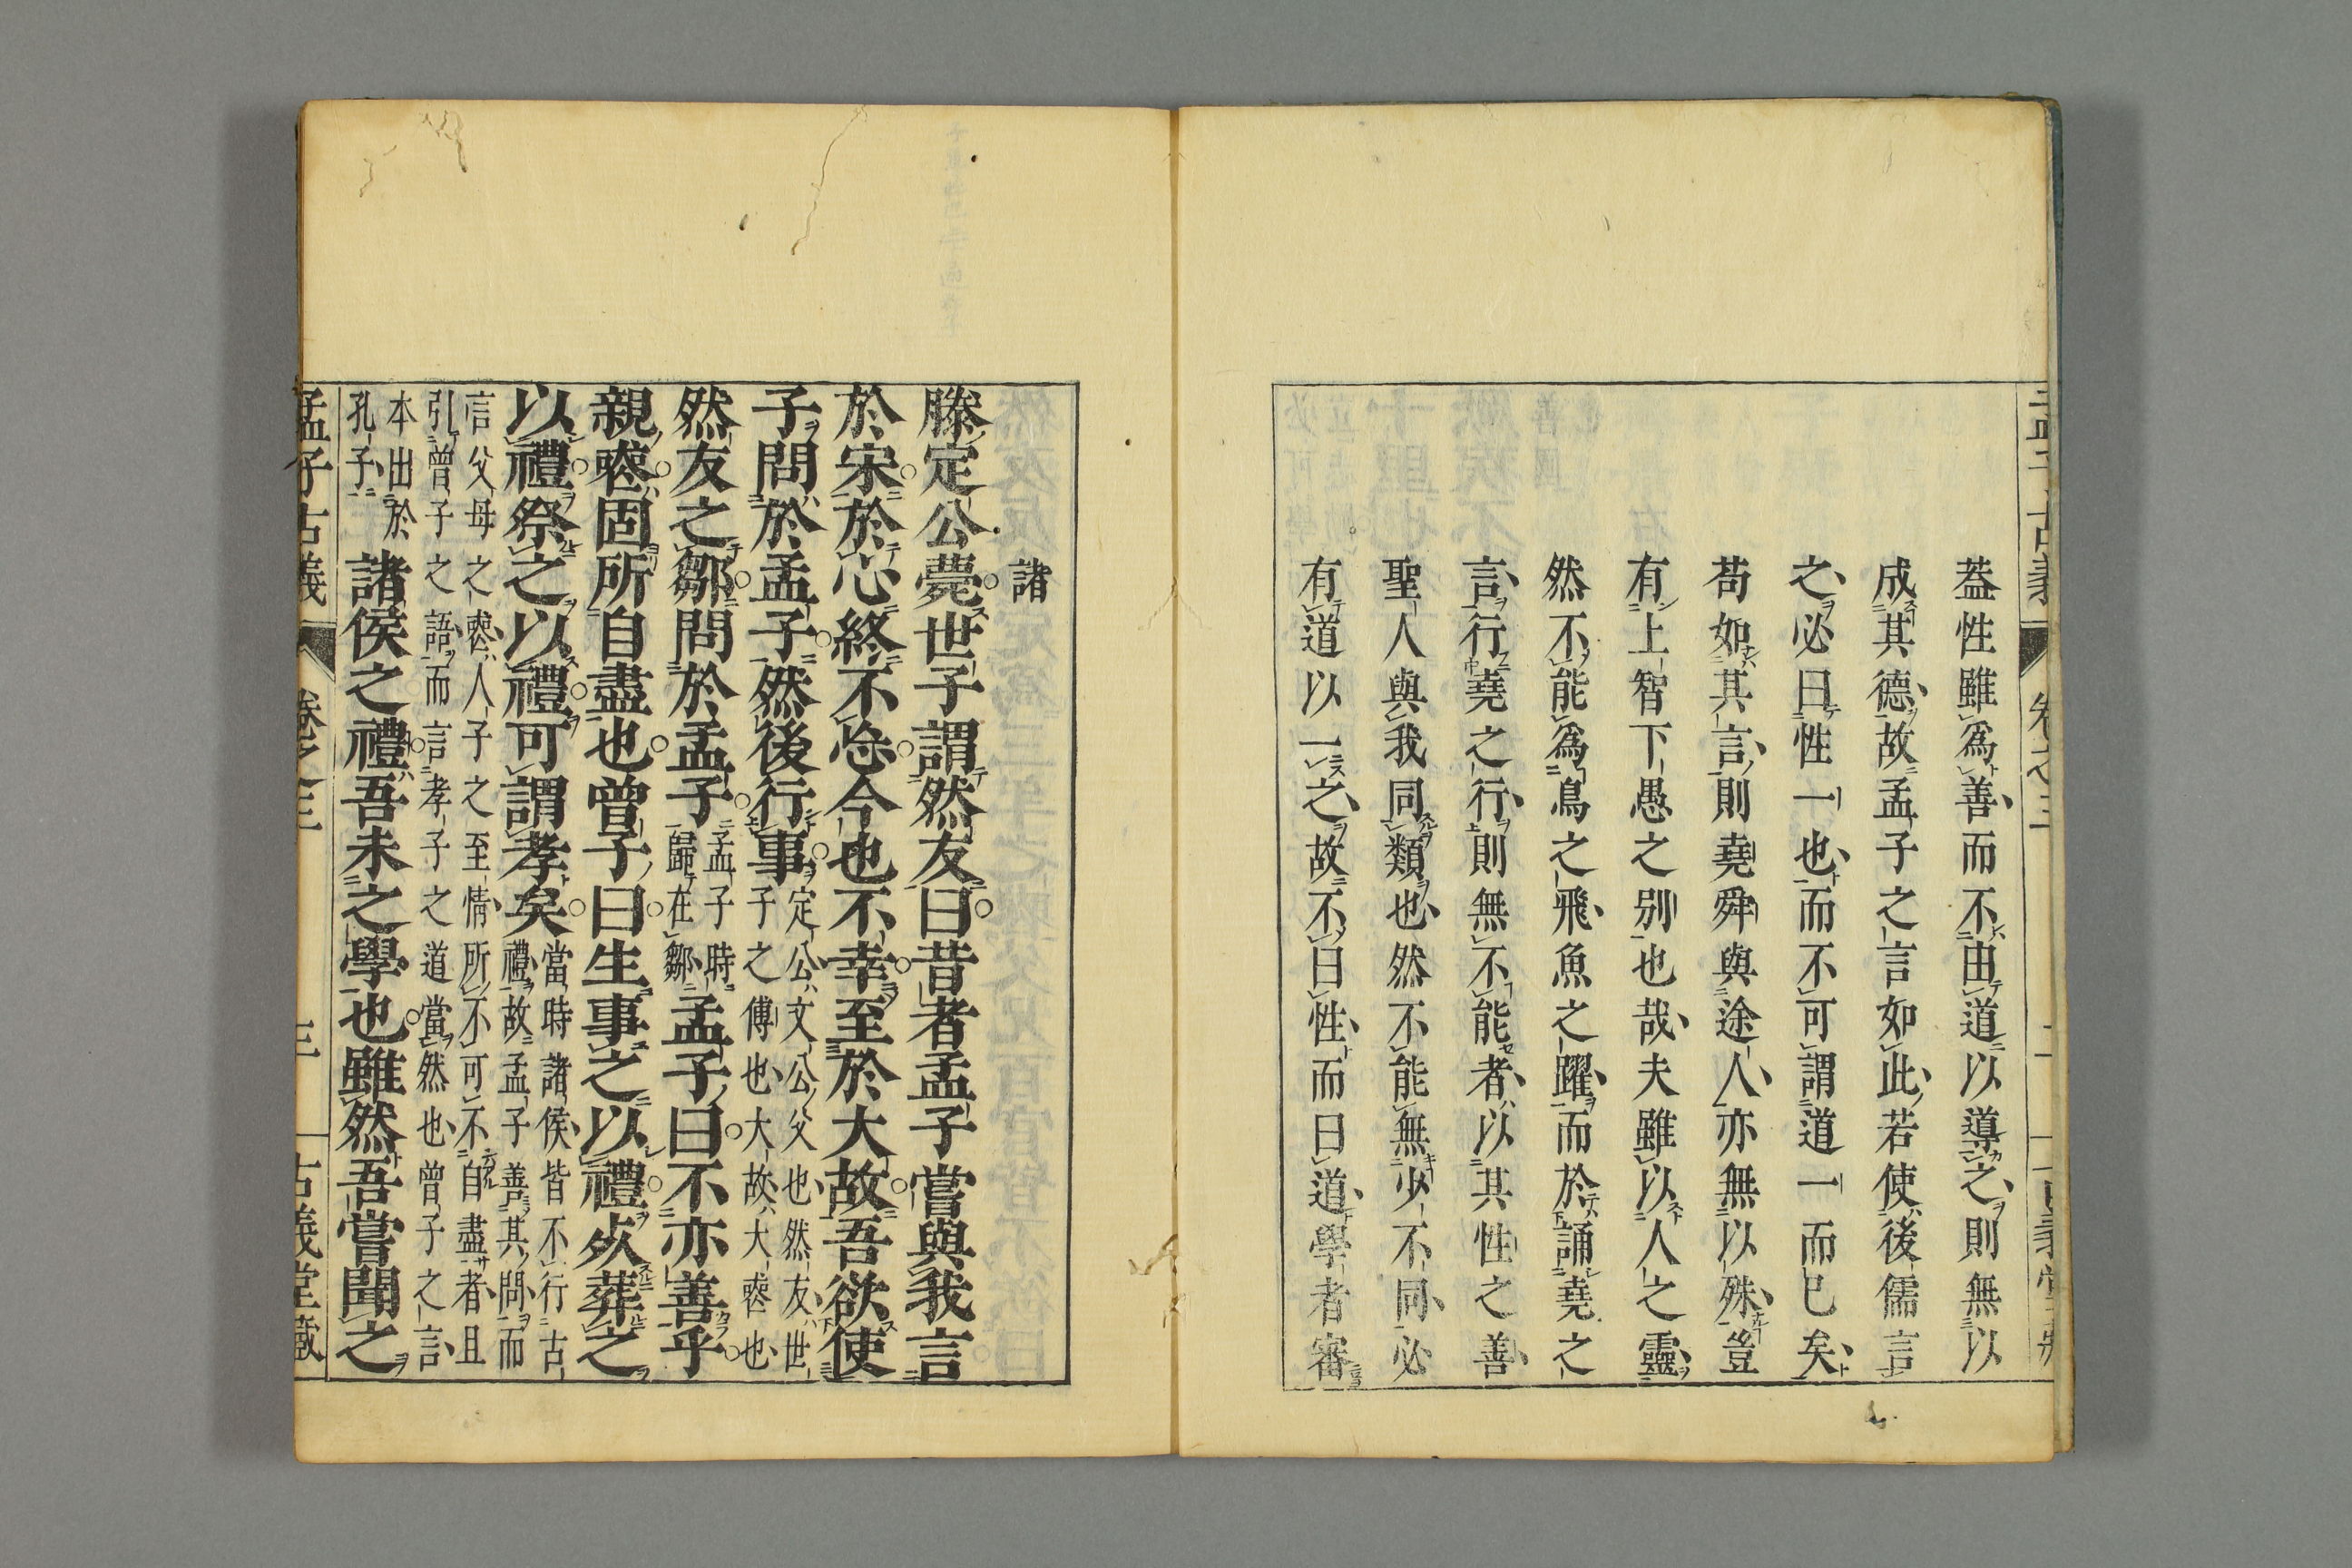 葢性雖爲善而不由道以導之則無以
成其德故孟子之言如此若使後儒言
之必曰性一也而不可謂道一而已矣
苟如其言則堯舜與途人亦無以殊豈
有上智下愚之别也哉夫雖以人之靈
然不能爲鳥之飛魚之躍而於誦堯之
言行堯之行則無不能者以其性之善
聖人與我同類也然不能無少不同必
有道以一之故不曰性而曰道學者審
諸
滕定公薨世子謂然友曰昔者孟子嘗與我言
於宋於心終不忘今也不幸至於大故吾欲使
子問於孟子然後行事
定公文公父也然友世
子之傅也大故大喪也
然友之鄒問於孟子
孟子時
歸在鄒
孟子曰不亦善乎
親喪固所自盡也曾子曰生事之以禮死葬之
以禮祭之以禮可謂孝矣
當時諸侯皆不行古
禮故孟子善其問而
言父母之喪人子之至情所不可不自盡者且
引曾子之語而言孝子之道當然也曾子之言
本出於
孔子
諸侯之禮吾未之學也雖然吾嘗聞之
孟子古義
卷之三
三
古義堂藏